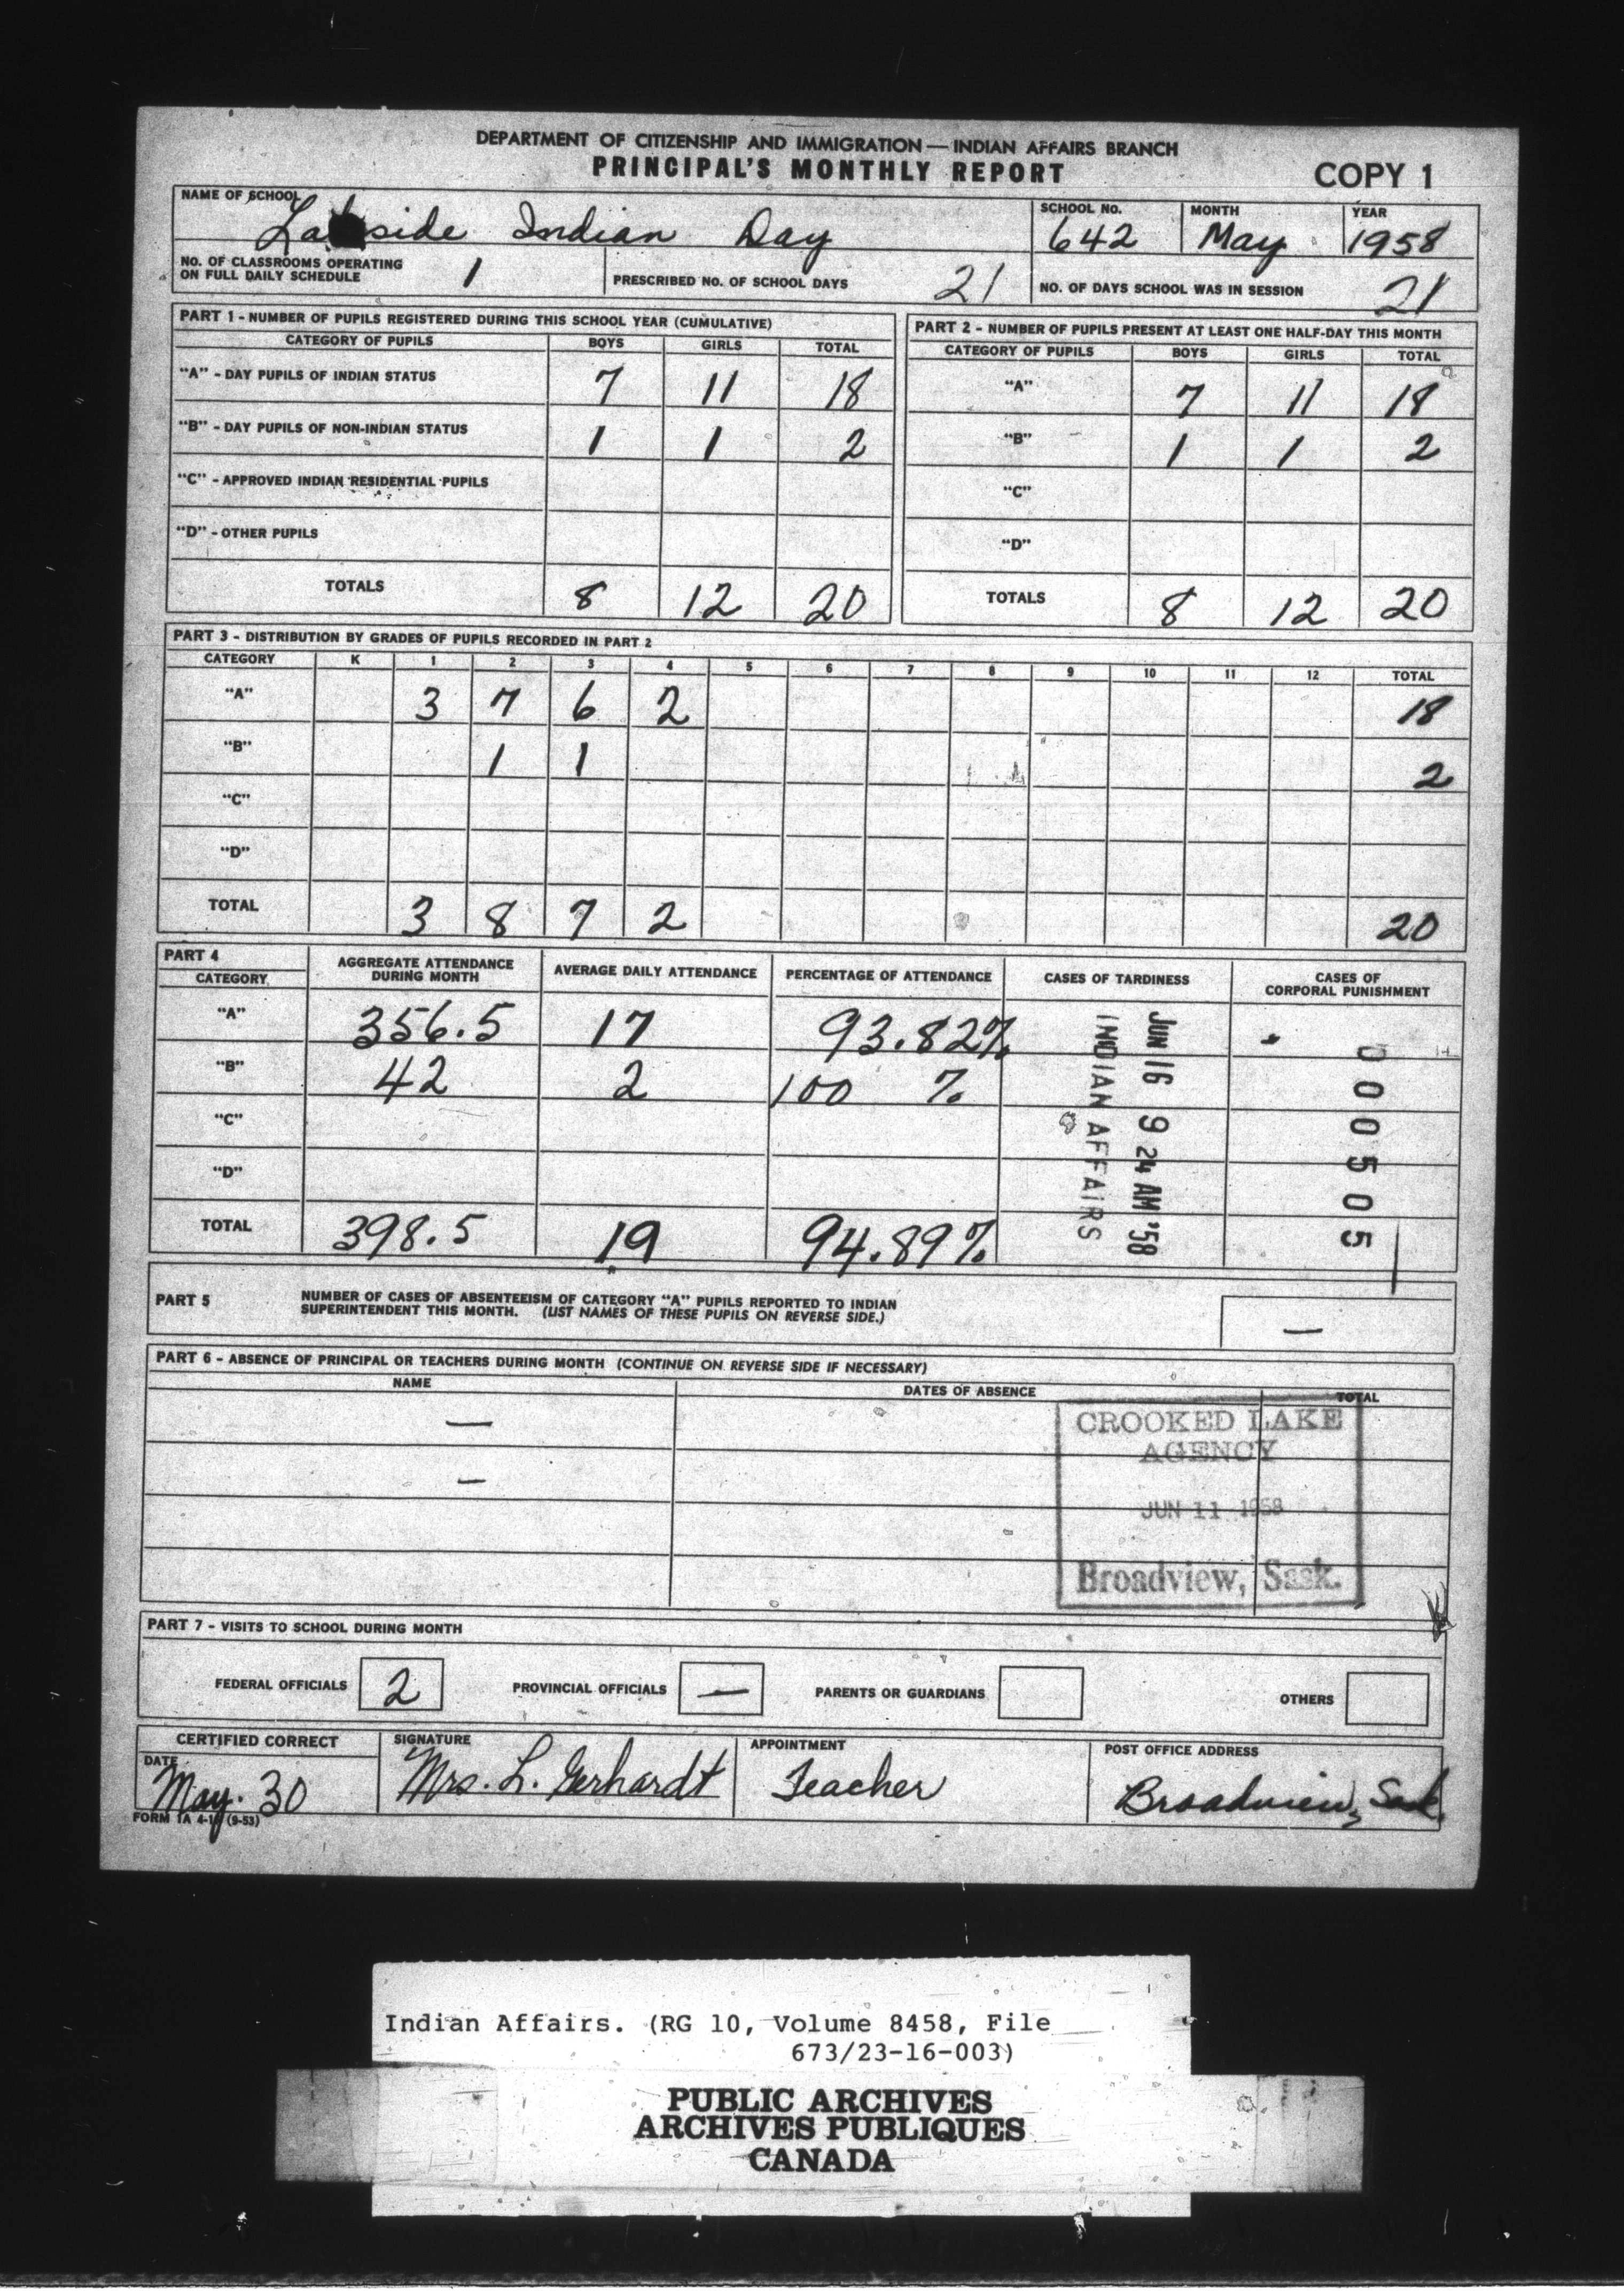 DEPARTMENT OF CITIZENSHIP AND IMMIGRATION — INDIAN AFFAIRS BRANCH
PRINCIPAL'S MONTHLY REPORT
COPY 1
NAME OF SCHOOL SCHOOL NO. MONTH YEAR
Lakeside Indian Day 642 May 1958
NO. OF CLASSROOMS OPERATING
ON FULL DAILY SCHEDULE 1 PRESCRIBED NO. OF SCHOOL DAYS 21 NO. OF DAYS SCHOOL WAS IN SESSION 21
PART 1 - NUMBER OF PUPILS REGISTERED DURING THIS SCHOOL YEAR (CUMULATIVE)
CATEGORY OF PUPILS BOYS GIRLS TOTAL
"A" - DAY PUPILS OF INDIAN STATUS 7 11 18
"B" - DAY PUPILS OF NON-INDIAN STATUS 1 1 2
"C" - APPROVED INDIAN RESIDENTIAL PUPILS
"D" - OTHER PUPILS
TOTALS 8 12 20
PART 2 - NUMBER OF PUPILS PRESENT AT LEAST ONE HALF-DAY THIS MONTH
CATEGORY OF PUPILS BOYS GIRLS TOTAL
"A" 7 11 18
"B" 1 1 2
"C"
"D"
TOTALS 8 12 20
PART 3 - DISTRIBUTION BY GRADES OF PUPILS RECORDED IN PART 2
CATEGORY K 1 2 3 4 5 6 7 8 9 10 11 12 TOTAL
"A" 3 7 6 2 18
"B" 1 1 2
"C"
"D"
TOTAL 3 8 7 2 20
PART 4
CATEGORY AGGREGATE ATTENDANCE DURING MONTH AVERAGE DAILY ATTENDANCE PERCENTAGE OF ATTENDANCE CASES OF TARDINESS CASES OF CORPORAL PUNISHMENT
"A" 356.5 17 93.82%
"B" 42 2 100 %
"C"
"D"
TOTAL 398.5 19 94.89%
JUN 16 9 24 AM '58
INDIAN AFFAIRS
000505
PART 5 NUMBER OF CASES OF ABSENTEEISM OF CATEGORY "A" PUPILS REPORTED TO INDIAN
SUPERINTENDENT THIS MONTH. (LIST NAMES OF THESE PUPILS ON REVERSE SIDE.) —
PART 6 - ABSENCE OF PRINCIPAL OR TEACHERS DURING MONTH (CONTINUE ON REVERSE SIDE IF NECESSARY)
NAME DATES OF ABSENCE TOTAL
—
—
CROOKED LAKE
AGENCY
JUN 11 1958
Broadview, Sask.
PART 7 - VISITS TO SCHOOL DURING MONTH
FEDERAL OFFICIALS 2 PROVINCIAL OFFICIALS — PARENTS OR GUARDIANS OTHERS
CERTIFIED CORRECT SIGNATURE APPOINTMENT POST OFFICE ADDRESS
DATE
May. 30 Mrs. L. Gerhardt Teacher Broadview, Sask.
FORM 1A 4- (9-53)
Indian Affairs. (RG 10, Volume 8458, File
673/23-16-003)
PUBLIC ARCHIVES
ARCHIVES PUBLIQUES
CANADA